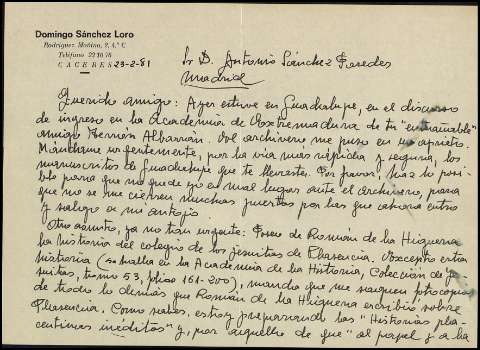 Domingo Sánchez Loro
Rodríguez Moñino, 2, 4.° C
Teléfono 22 10 76
CACERES 23-2-81
Sr D. Antonio Sánchez Paredes
Madrid
Querido amigo: Ayer estuve en Guadalupe, en el discurso
de ingreso en la Academia de Extremadura de tu "entrañable"
amigo Hernán Albarrán. El archivero me puso en un aprieto.
Mándame urgentemente, por la vía más rápida y segura, los
manuscritos de Guadalupe que te llevaste. Por favor, haz lo posi-
ble para que no quede yo en mal lugar ante el archivero, para
que no se me cierren muchas puertas por las que ahora entro
y salgo a mi antojo.
Otro asunto, ya no tan urgente: Poseo de Román de la Higuera
la historia del colegio de los jesuitas de Plasencia. Excepto esta
historia (se halla en la Academia de la Historia, Colección de je-
suitas, tomo 53, folios 161-200), mando que me saquen fotocopias
de todo lo demás que Román de la Higuera escribió sobre
Plasencia. Como sabes, estoy preparando las "Historias pla-
centinas inéditas" y, por aquello de que "al papel y a la